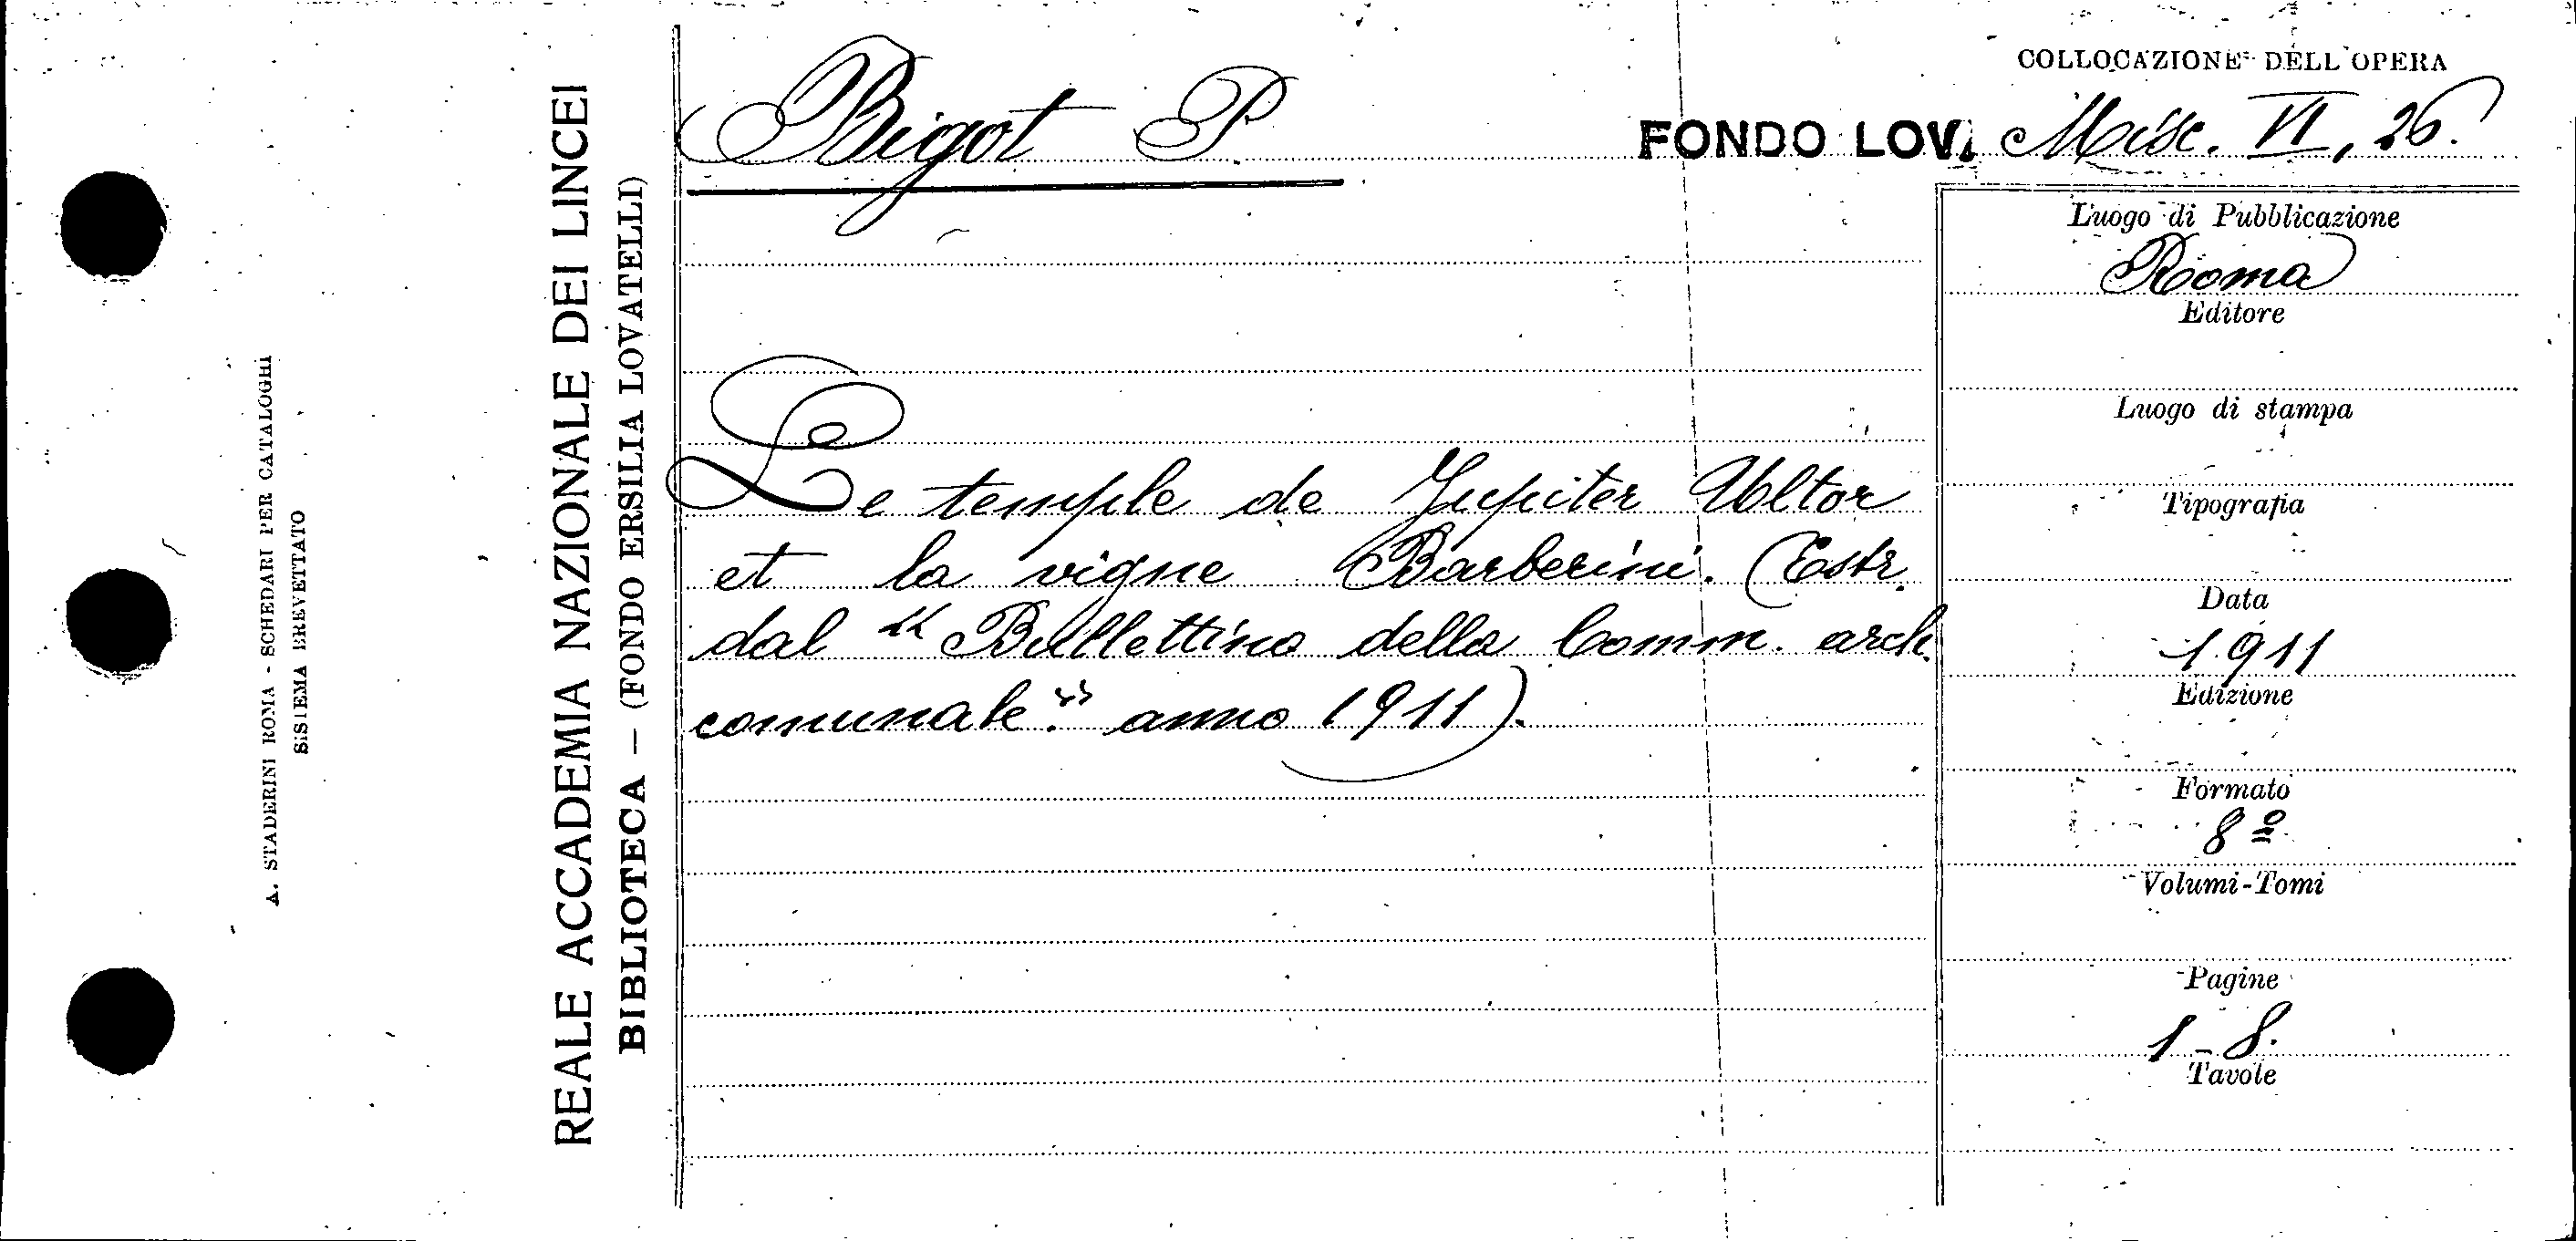 A. STADERINI ROMA - SCHEDARI PER CATALOGHI
SISTEMA BREVETTATO
REALE ACCADEMIA NAZIONALE DEI LINCEI
BIBLIOTECA — (FONDO ERSILIA LOVATELLI)
Bigot P.
COLLOCAZIONE DELL'OPERA
FONDO LOV. Misc. VI, 26.
Le temple de Jupiter Ultor
et la vigne Barberini. (Estr.
dal "Bullettino della Comm. arch.
comunale." anno 1911).
Luogo di Pubblicazione
Roma
Editore
Luogo di stampa
Tipografia
Data
1911
Edizione
Formato
8º
Volumi-Tomi
Pagine
1-8.
Tavole